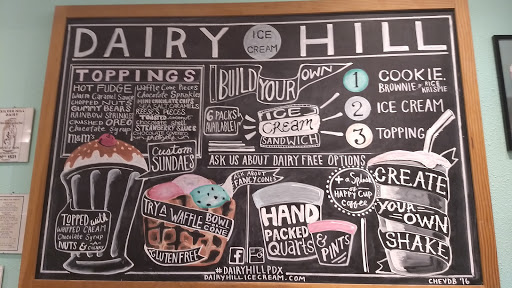 DAIRY HILL
ICE
CREAM
TOPPINGS
HOT FUDGE
Warm Caramel Sauce
CHOPPED NUTS
GUMMY BEARS
RAINBOW SPRINKLES
CRUSHED OREO
Chocolate Syrup
m&m's
Waffle Cone Pieces
Chocolate Sprinkles
MINI CHOCOLATE CHIPS
SEA SALT CARAMELS
REESE'S PIECES
TOASTED
COCONUT
STRAWBERRY SAUCE
BUILD YOUR OWN
6 PACKS
AVAILABLE!
ICE
Cream
SANDWICH
1 COOKIE,
BROWNIE or RICE
KRISPIE
2 ICE CREAM
3 TOPPING
ASK US ABOUT DAIRY FREE OPTIONS
Custom
SUNDAES
TOPPED with
WHIPPED CREAM
Chocolate Syrup
NUTS & cherry
ASK ABOUT
FANCY CONES
TRY A WAFFLE BOWL
or CONE
GLUTEN FREE
HAND
PACKED
QUARTS
& PINTS
+ a Splash
of
HAPPY CUP
COFFEE
CREATE
YOUR OWN
SHAKE
f
#DAIRYHILLPDX
DAIRYHILLICECREAM.COM
CHEVDB '16